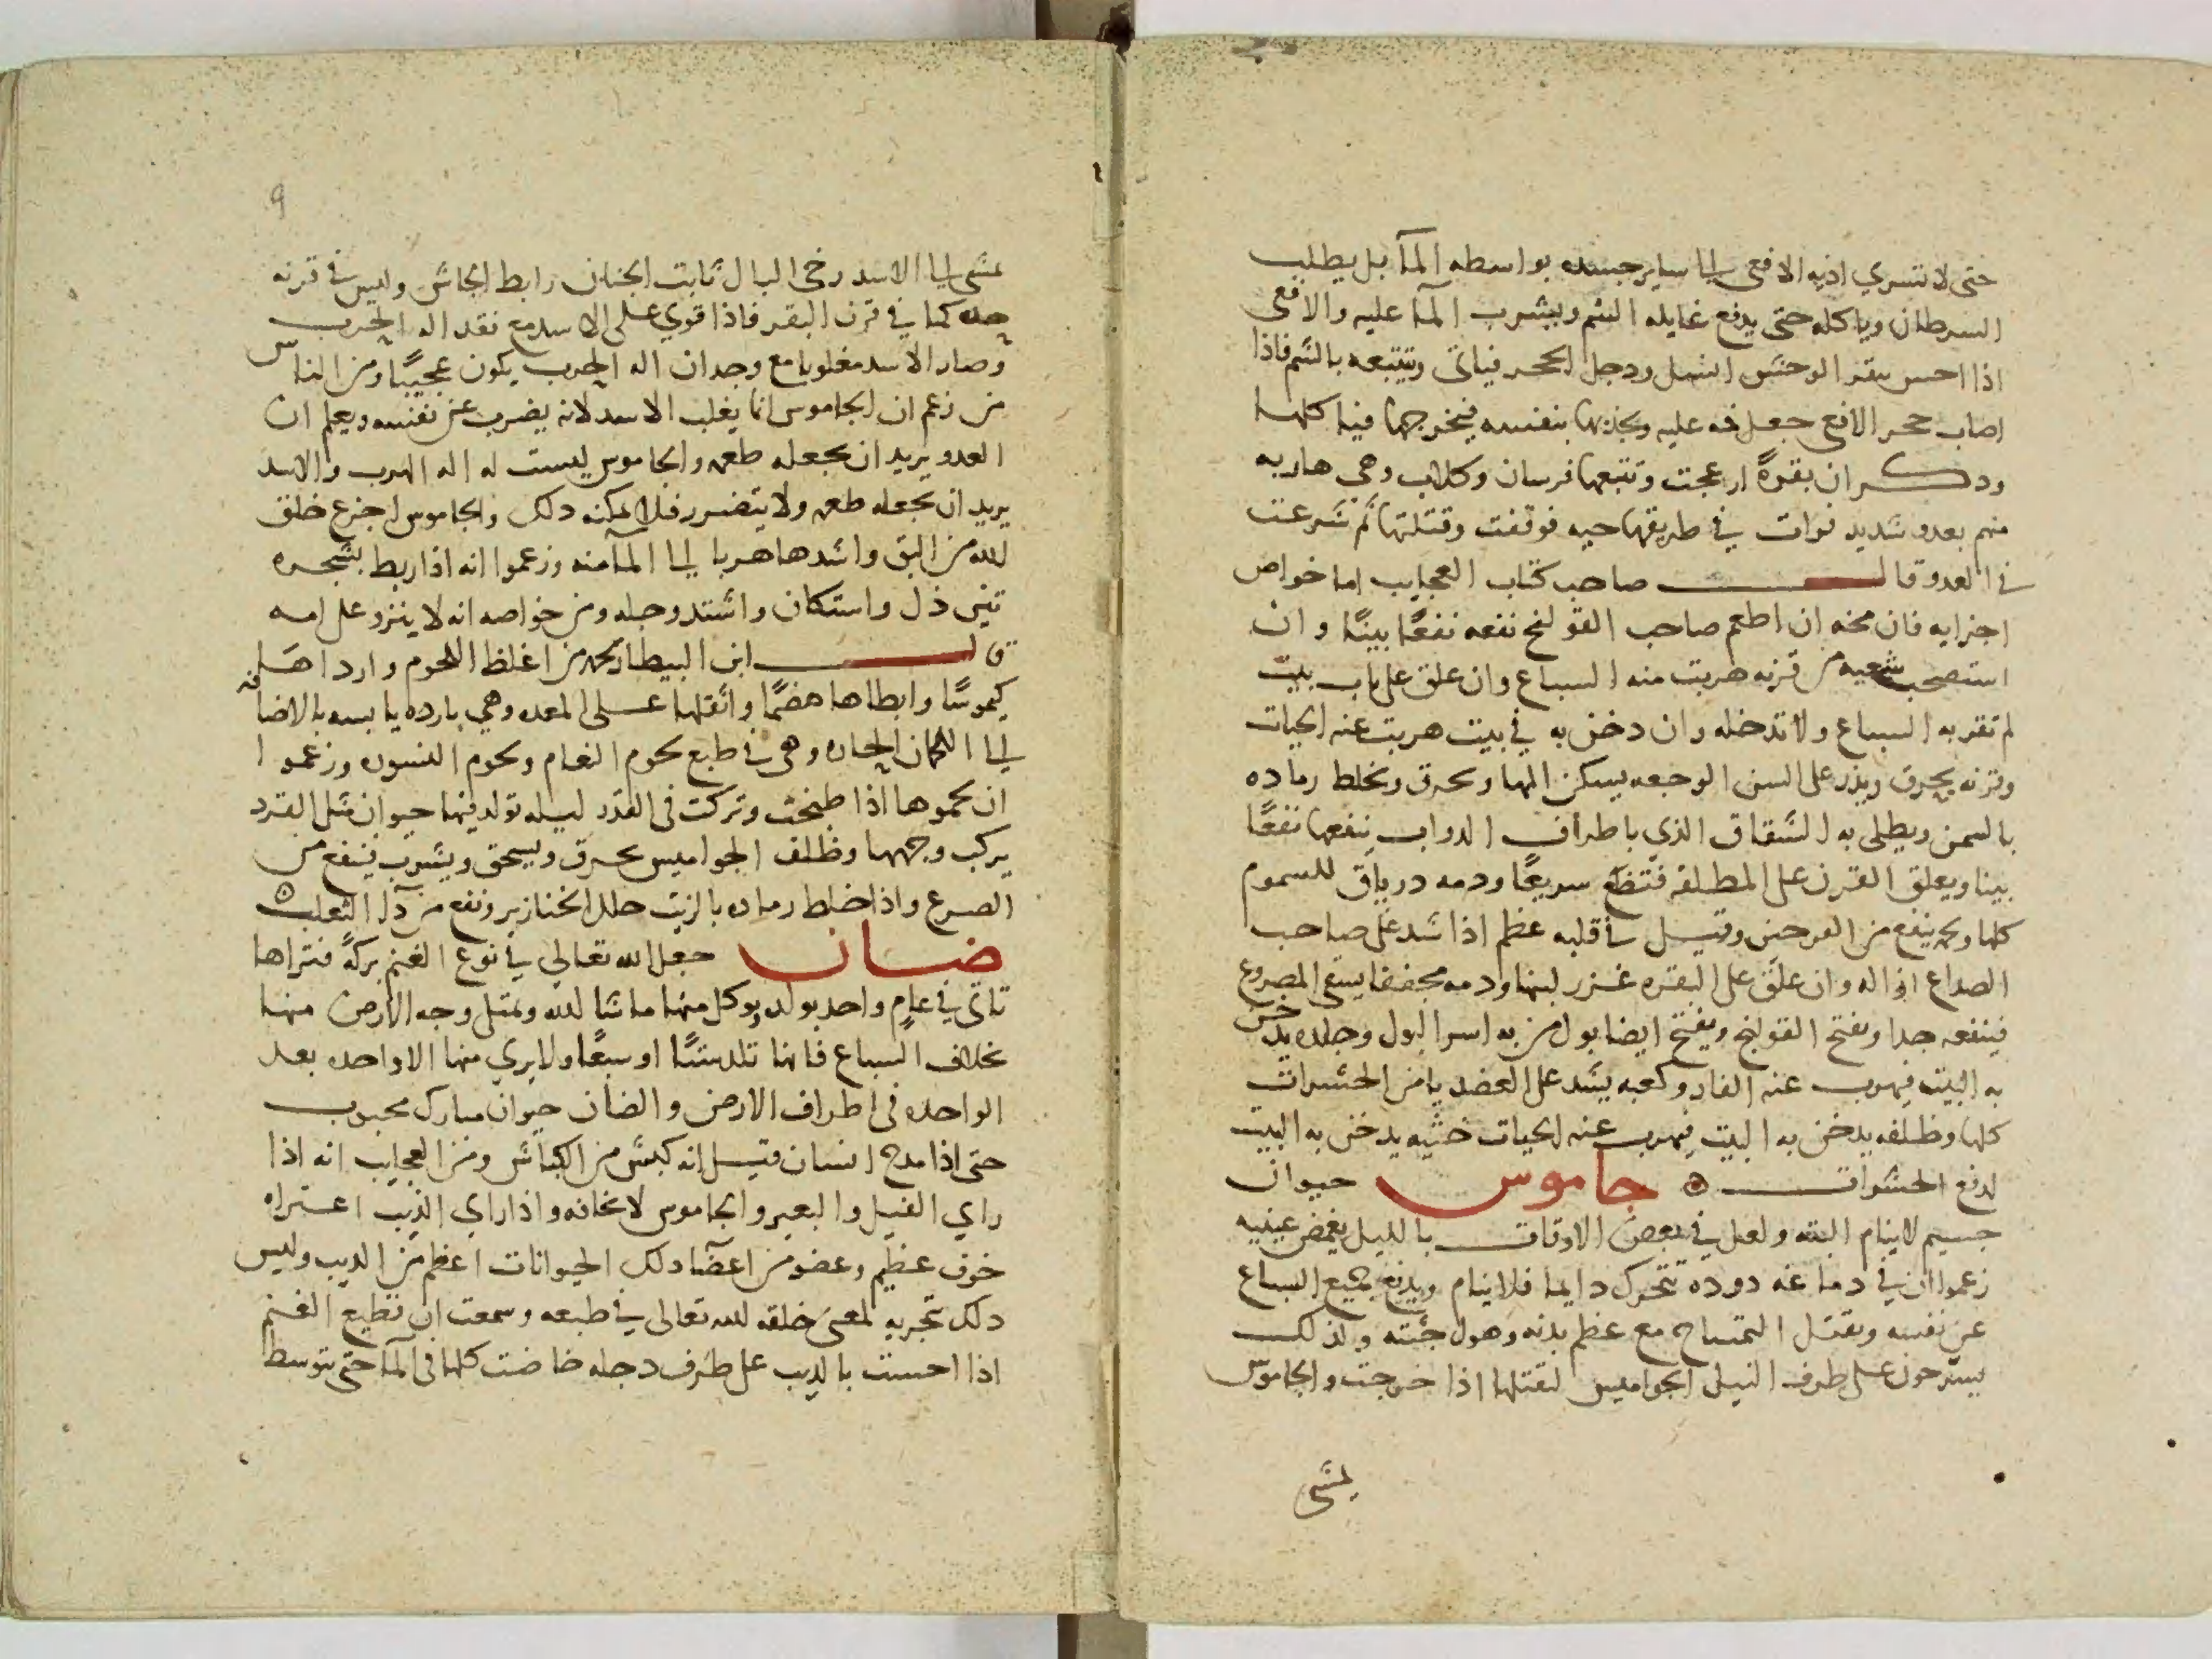 حتى لا تسري اذيه الافعى الى ساير جسده بواسطه المآ بل يطلب
السرطان وياكله حتى يدفع غايله السم ويشرب المآ عليه والافعى
اذا احس بقر الوحش دخل الحجر فياتى وتتبعه بالشم فاذا
اصاب حجر الافعى جعل فمه عليه ويجذبها بنفسه فيخرجها فياكلها
وذكر ان بقرةً ازعجت وتتبعها فرسان وكلاب وهى هاربه
منهم بعدو شديد فرات في طريقها حيه فوقفت وقتلتها ثم شرعت
في العدو قال صاحب كتاب العجايب اما خواص
اجزايه فان مخه ان اطعم صاحب القولنج نفعه نفعًا بينًا وان
استصحب شعبه من قرنه هربت منه السباع وان علق على باب بيت
لم تقربه السباع ولا تدخله وان دخن به في بيت هربت عنه الحيات
وقرنه يحرق ويذر على السن الوجعه يسكن المها ويحرق ويخلط رماده
بالسمن ويطلى به الشقاق الذي باطراف الدواب ينفعها نفعًا
بينا ويعلق القرن على المطلقه فتضع سريعًا ودمه درياق للسموم
كلها ينفع من وقيل في قلبه عظم اذا شد على صاحب
الصداع ازاله وان علق على البقره غزر لبنها ودمه مجففا يسقى المصروع
فينفعه جدا ويفتح القولنج ويفتح ايضا بول من به اسر البول وجلده يدخن
به البيت فيهرب عنه الفار وكعبه يشد على العضد يامن الحشرات
كلها وظلفه يدخن به البيت فيهرب عنه الحيات خثيه يدخن به البيت
لدفع الحشرات جاموس حيوان
جسيم لا ينام البته ولعل في بعض الاوقات بالليل يغمض عينيه
زعموا ان في دماغه دوده تتحرك دايما فلا ينام ويدفع جميع السباع
عن نفسه ويقتل التمساح مع عظم بدنه وهول جثته ولذلك
يسرحون على طرف النيل الجواميس لقتلها اذا خرجت والجاموس
يمشى
9
يمشى الى الاسد رخى البال ثابت الجنان رابط الجاش وليس في قرنه
حده كما في قرن البقر فاذا قوي على الاسد مع فقد اله الحرب
وصار الاسد مغلوبا مع وجدان اله الحرب يكون عجيبًا ومن الناس
من زعم ان الجاموس انما يغلب الاسد لانه يضرب عن نفسه ويعلم ان
العدو يريد ان يجعله طعمه والجاموس ليست له اله الهرب والاسد
يريد ان يجعله طعمه ولا يتضرر فلا يمكنه ذلك والجاموس اجزع خلق
لله من البق واشدها هربا الى المآ منه وزعموا انه اذا ربط بشجره
تين ذل واستكان واشتد وجله ومن خواصه انه لا ينزو على امه
قال ابن البيطار لحمه من اغلظ اللحوم وارداها
كيموسًا وابطاها هضمًا واثقلها على المعده وهي بارده يابسه بالاضافه
الى اللحمان الحاره وهى في طبع لحوم النعام ولحوم النسور وزعموا
ان لحموها اذا طبخت وتركت فى القدر ليله تولد فيها حيوان مثل القرد
يركب وجهها وظلف الجواميس يحرق ويسحق ويشرب فينفع من
الصرع واذا خلط رماده بالزيت حلل الخنازير ونفع من دآ الثعلب
ضان جعل الله تعالى في نوع الغنم بركةً فتراها
تاتى في عام واحد بولد ويوكل منها ما شا الله ويمتلى وجه الارض منها
بخلاف السباع فانها تلد ستًا او سبعًا ولا يري منها الا واحده بعد
الواحده فى اطراف الارض والضان حيوان مبارك محبوب
حتى اذا مدح انسان قيل انه كبش من الكباش ومن العجايب انه اذا
راي الفيل والبعير والجاموس لا يخافه واذا راي الذيب اعتراه
خوف عظيم وعضو من اعضآ ذلك الحيوانات اعظم من الذيب وليس
ذلك تجربه لمعنى خلقه لله تعالى في طبعه وسمعت ان قطيع الغنم
اذا احست بالذيب على طرف دجله خاضت كلها فى المآ حتى يتوسط